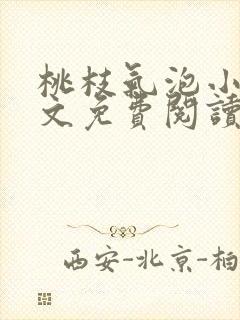 桃枝氣泡小
文免費閱讀
西安-北京-柏